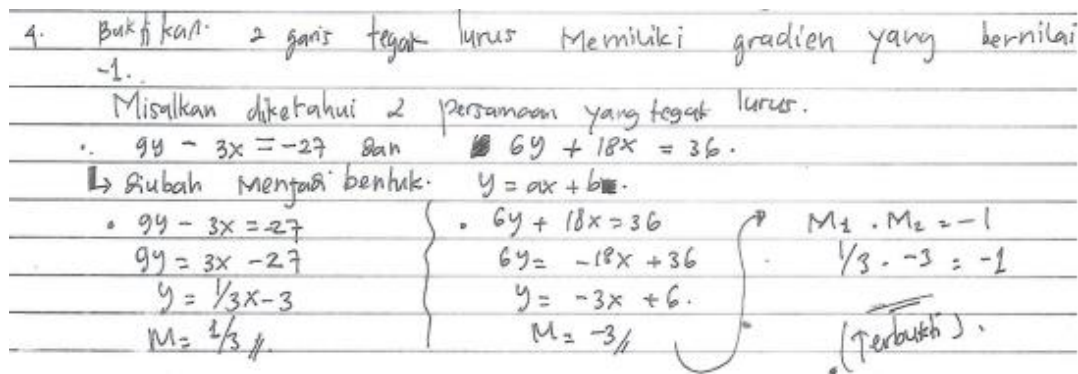 4. Buktikan. 2 garis tegak lurus Memiliki gradien yang bernilai
-1.
Misalkan diketahui 2 persamaan yang tegak lurus.
• 9y - 3x = -27 dan 6y + 18x = 36.
↳ diubah menjadi bentuk. y = ax + b.
• 9y - 3x = -27
9y = 3x - 27
y = 1/3x - 3
M = 1/3 //
• 6y + 18x = 36
6y = -18x + 36
y = -3x + 6.
M = -3 //
M1 . M2 = -1
1/3 . -3 = -1
(Terbukti).